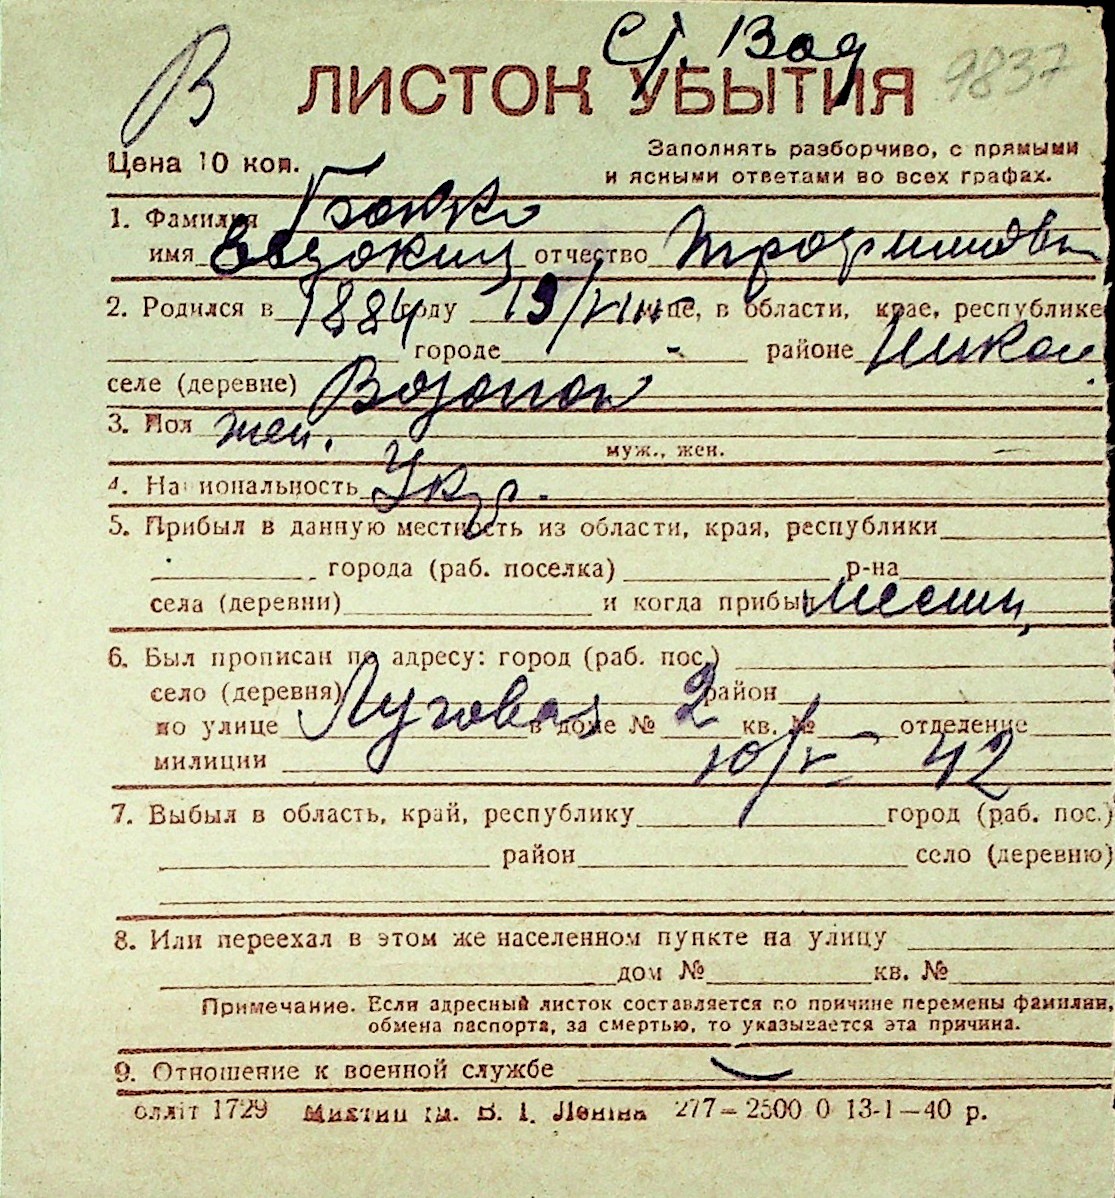 В
Ст. Вод
ЛИСТОК УБЫТИЯ 9837
Цена 10 коп.
Заполнять разборчиво, с прямыми
и ясными ответами во всех графах.
1. Фамилия
имя Евдокия отчество Трофимовн
2. Родился в 1884 году 19/VIII м-це, в области, крае, республике
городе - районе Никол.
селе (деревне) Водопой
3. Пол жен.
муж., жен.
4. Национальность Укр.
5. Прибыл в данную местность из области, края, республики
города (раб. поселка) р-на
села (деревни) и когда прибыл местн
6. Был прописан по адресу: город (раб. пос.)
село (деревня) район
по улице Луговая в доме № 2 кв. № отделение
милиции 10/V 42
7. Выбыл в область, край, республику город (раб. пос.)
район село (деревню)
8. Или переехал в этом же населенном пункте на улицу
дом № кв. №
Примечание. Если адресный листок составляется по причине перемены фамилии,
обмена паспорта, за смертью, то указывается эта причина.
9. Отношение к военной службе
1729 ім. В. І. Леніна 277—2500 0 13-1—40 р.